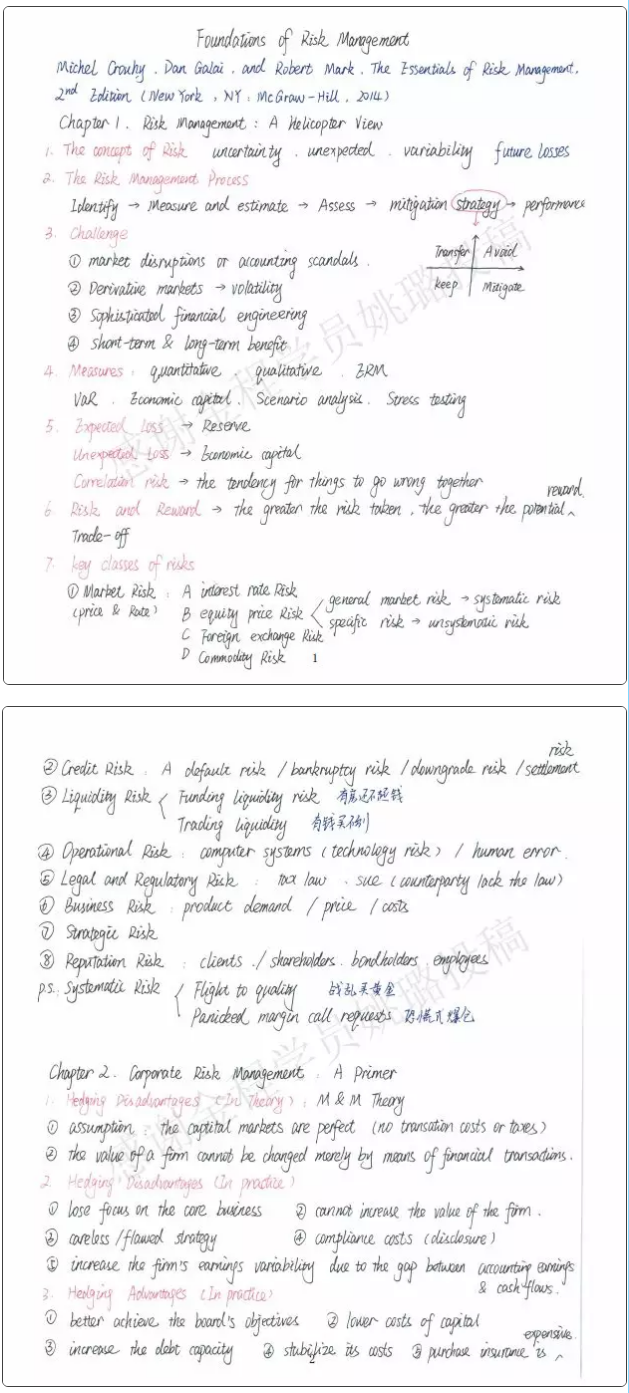 Foundations of Risk Management
Michel Crouhy, Dan Galai, and Robert Mark, The Essentials of Risk Management,
2nd Edition (New York, NY: McGraw-Hill, 2014)
Chapter 1. Risk Management: A Helicopter View
1. The concept of Risk uncertainty. unexpected. variability future losses
2. The Risk Management Process
Identify → Measure and estimate → Assess → mitigation strategy → performance
3. Challenge
Transfer Avoid
① market disruptions or accounting scandals.
② Derivative markets → volatility
keep Mitigate
③ Sophisticated financial engineering
④ short-term & long-term benefit
4. Measures: quantitative. qualitative. ERM
VaR. Economic capital. Scenario analysis. Stress testing
5. Expected Loss → Reserve
Unexpected Loss → Economic capital
Correlation risk → the tendency for things to go wrong together
reward.
6. Risk and Reward → the greater the risk taken, the greater the potential ^
Trade-off
7. key classes of risks
① Market Risk: A interest rate Risk
(price & Rate) B equity price Risk < general market risk → systematic risk
specific risk → unsystematic risk
C Foreign exchange Risk
D Commodity Risk 1
risk
② Credit Risk: A default risk / bankruptcy risk / downgrade risk / settlement
③ Liquidity Risk < Funding liquidity risk
Trading liquidity
④ Operational Risk: computer systems (technology risk) / human error.
⑤ Legal and Regulatory Risk: tax law. sue (counterparty lack the law)
⑥ Business Risk: product demand / price / costs
⑦ Strategic Risk
⑧ Reputation Risk: clients. / shareholders. bondholders. employees
p.s. Systematic Risk { Flight to quality 战乱买黄金
Panicked margin call requests 恐慌式爆仓
Chapter 2. Corporate Risk Management: A Primer
1. Hedging Disadvantages (In Theory): M & M Theory
① assumption: the captital markets are perfect (no transation costs or taxes)
② the value of a firm cannot be changed merely by means of financial transactions.
2. Hedging Disadvantages (In practice)
① lose focus on the core business ② cannot increase the value of the firm.
③ careless / flawed strategy ④ compliance costs (disclosure)
⑤ increase the firm's earnings variability due to the gap between accounting earnings
& cash flows.
3. Hedging Advantages (In practice)
① better achieve the board's objectives ② lower costs of capital
expensive.
③ increase the debt capacity ④ stubilize its costs ⑤ purchase insurance is ^
2
感谢金程学员姚璐投稿
感谢金程学员姚璐投稿